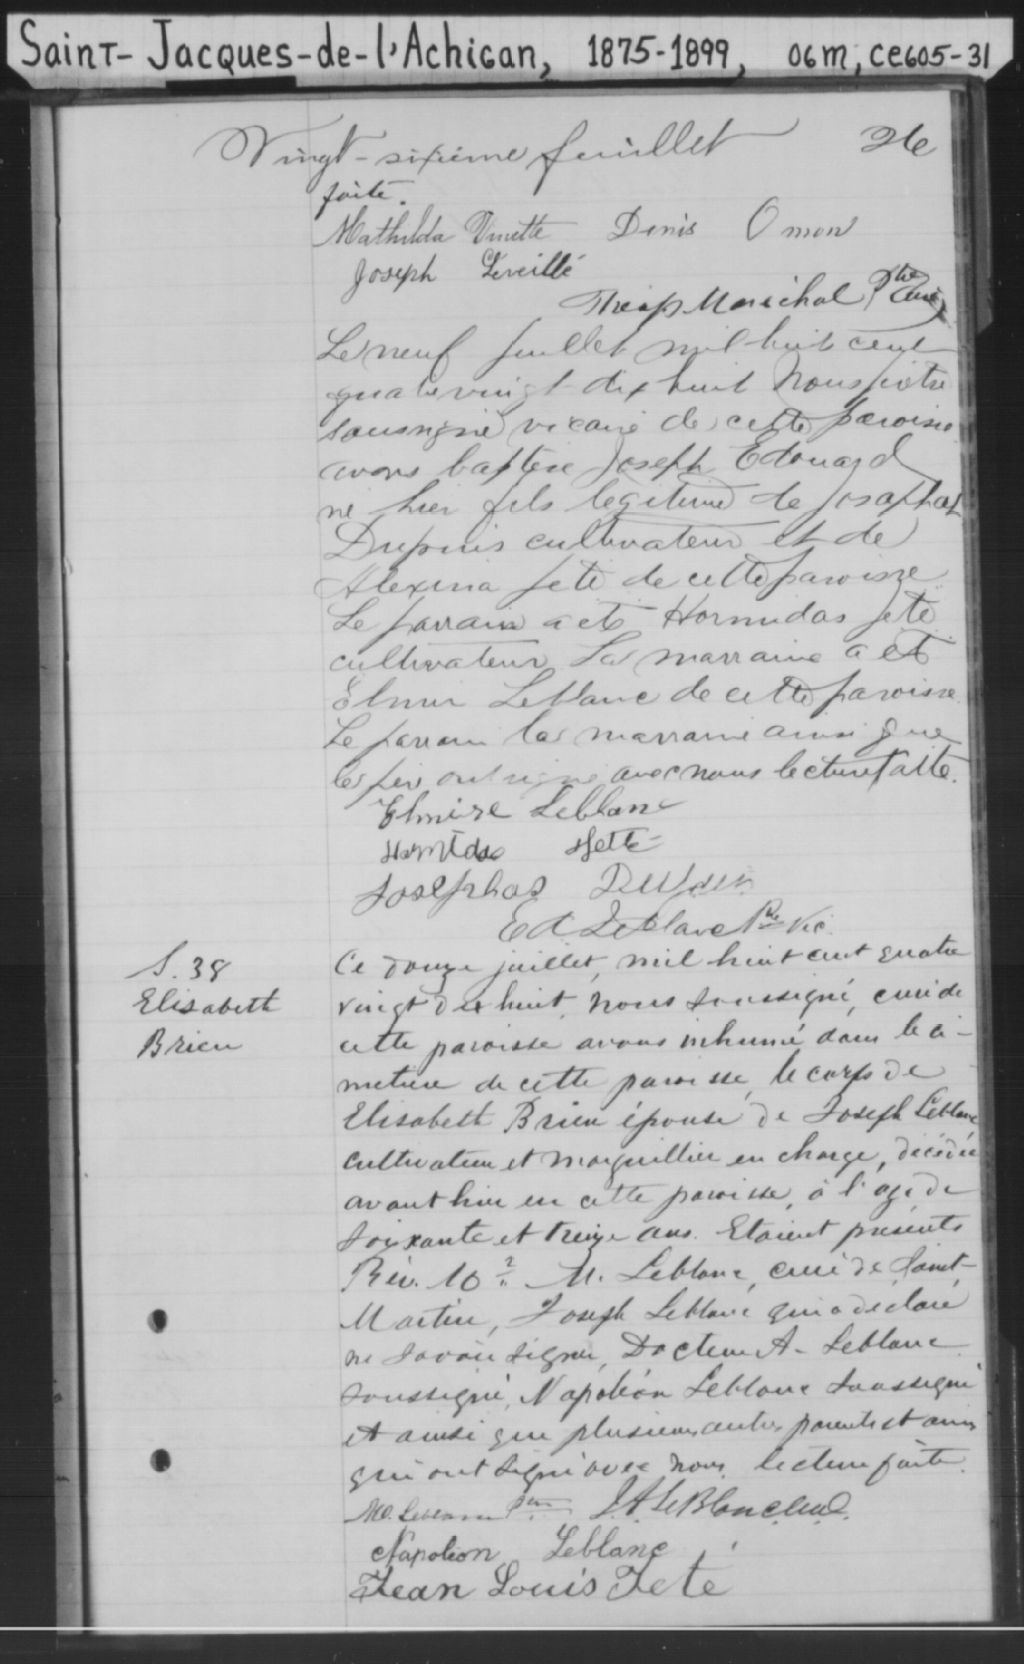 Saint-Jacques-de-l'Achigan, 1875-1899, 06m, ce605-31
Vingt-sixième feuillet 26
faite.
Mathilda Vinette Denis Omon
Joseph Léveillé
Théop Maréchal Ptre Curé
Le neuf juillet mil huit cent
quatrevingt dix huit Nous prêtre
soussigné vicaire de cette paroisse
avons baptisé Joseph Edouard
né hier fils légitime de Josaphat
Dupuis cultivateur et de
Alexina Jetté de cette paroisse
Le parrain a été Hormidas Jetté
cultivateur La marraine a été
Elmire Leblanc de cette paroisse
Le parrain la marraine ainsi que
le père ont signé avec nous lecture faite.
Elmire Leblanc
Hormidas Jetté
Josephat Dupuis
Ed Leblanc Ptre Vic.
S. 38
Elisabeth
Brien
Ce douze juillet, mil huit cent quatre
vingt dix huit, nous soussigné, curé de
cette paroisse avons inhumé dans le ci-
metière de cette paroisse, le corps de
Elisabeth Brien épouse de Joseph Leblanc
cultivateur et marguillier en charge, décédée
avant hier en cette paroisse, à l'age de
soixante et treize ans. Etaient présents
Rév. M. Leblanc, curé de Saint-
Martin, Joseph Leblanc qui a déclaré
ne savoir signer, Docteur A- Leblanc
soussigné, Napoléon Leblanc soussigné
et ainsi que plusieurs autres parents et amis
qui ont signé avec nous. lecture faite.
J.A. LeBlanc
Napoléon Leblanc
Jean Louis Jeté